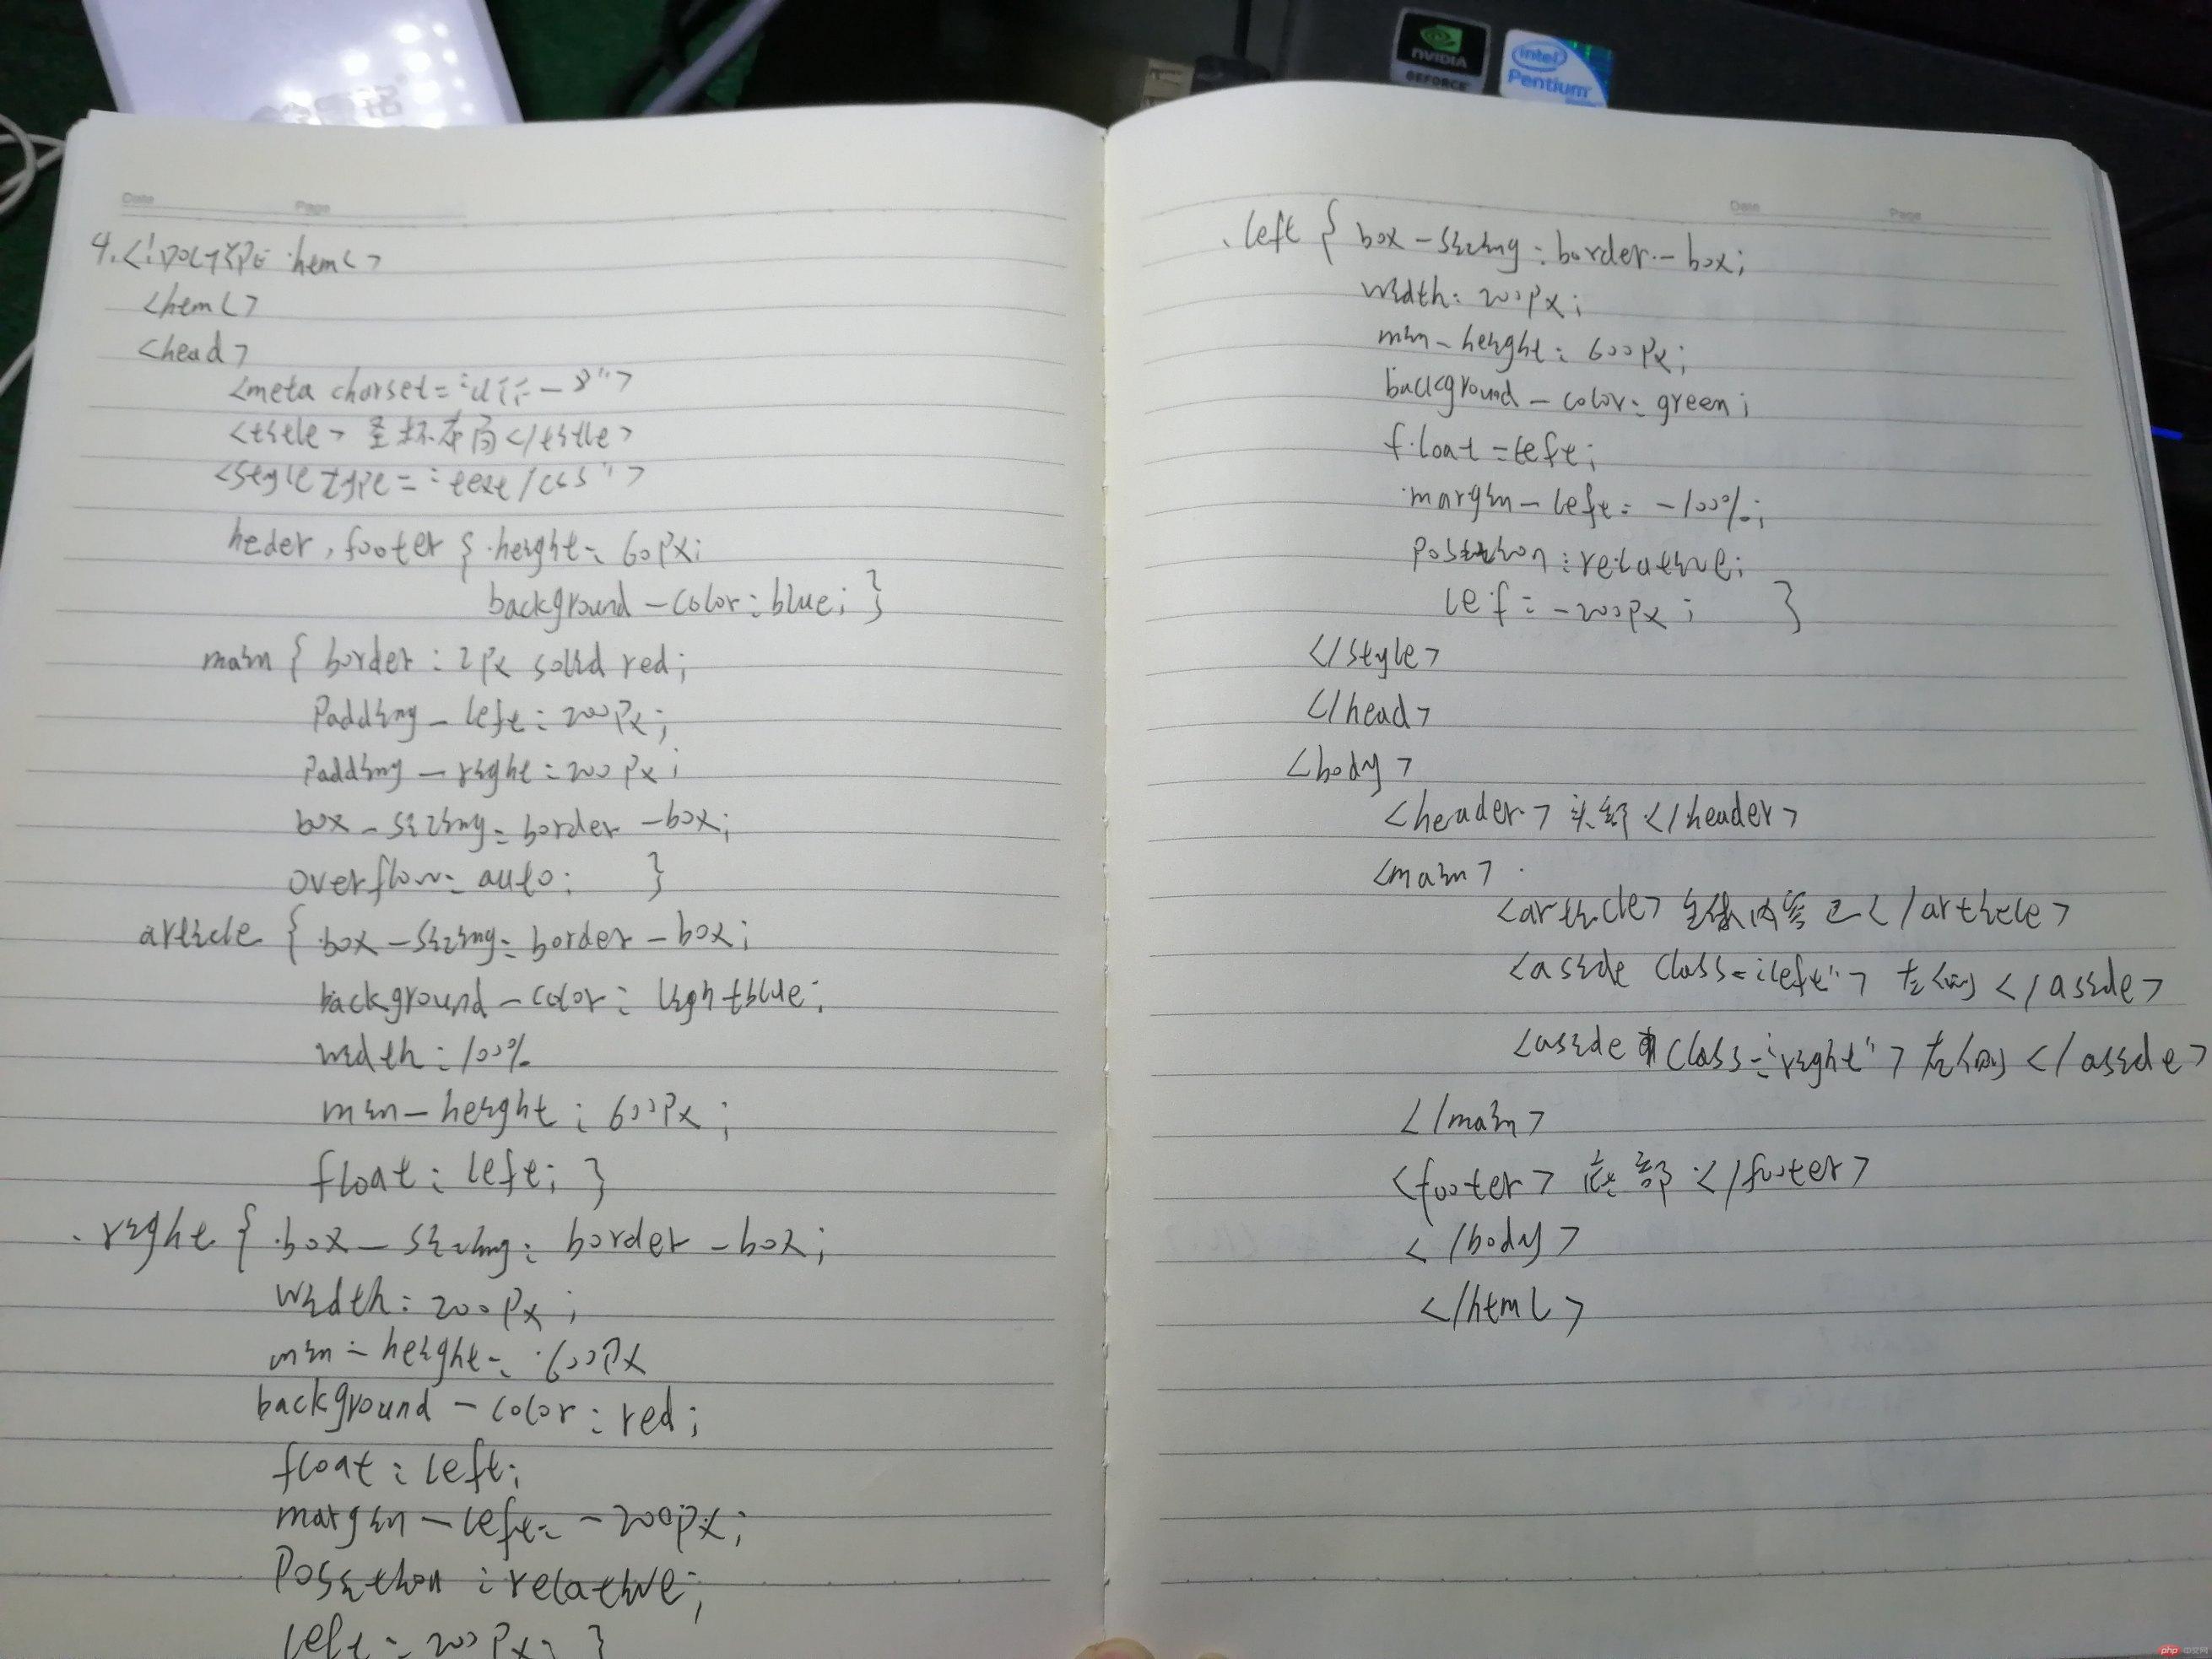 NVIDIA
GEFORCE
intel
Pentium
Date Page
4.<!DOCTYPE html>
<html>
<head>
<meta charset="utf-8">
<title>圣杯布局</title>
<style type="text/css">
heder,footer{height:60px;
background-color:blue;}
main{border:2px solid red;
padding-left:200px;
padding-right:200px;
box-sizing:border-box;
overflow:auto;}
article{box-sizing:border-box;
background-color:lightblue;
width:100%
min-height:600px;
float:left;}
.right{box-sizing:border-box;
width:200px;
min-height:600px
background-color:red;
float:left;
margin-left:-200px;
Position:relative;
left:200px;}
Date Page
.left{box-sizing:border-box;
width:200px;
min-height:600px;
background-color:green;
float:left;
margin-left:-100%;
position:relative;
lef:-200px;}
</style>
</head>
<body>
<header>头部</header>
<main>
<article>主体内容区</article>
<aside class="left">左侧</aside>
<aside class="right">右侧</aside>
</main>
<footer>底部</footer>
</body>
</html>
php 中文网